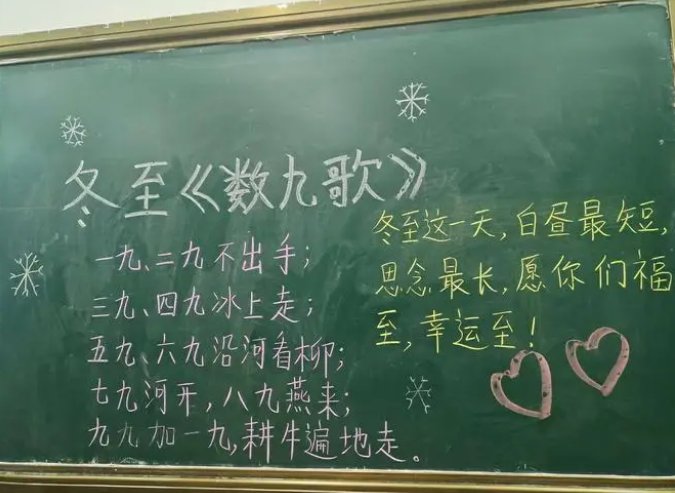 冬至《数九歌》
一九、二九不出手；
三九、四九冰上走；
五九、六九沿河看柳；
七九河开，八九燕来；
九九加一九，耕牛遍地走。
冬至这一天，白昼最短，
思念最长，愿你们福
至，幸运至！